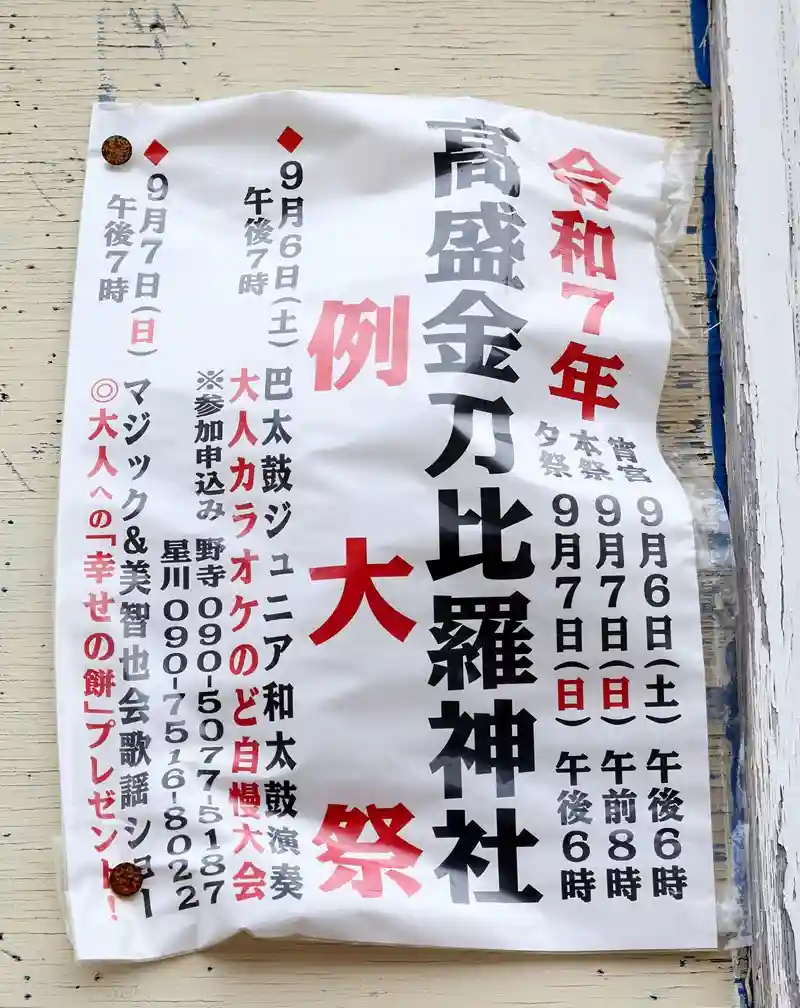 令和7年
宵宮 9月6日(土) 午後6時
本祭 9月7日(日) 午前8時
夕祭 9月7日(日) 午後6時
高盛金刀比羅神社
例大祭
◆9月6日(土) 午後7時
巴太鼓ジュニア和太鼓演奏
大人カラオケのど自慢大会
※参加申込み 野寺 090-5077-5187
星川 090-7516-8022
◆9月7日(日) 午後7時
マジック&美智也会歌謡ショー
◎大人への「幸せの餅」プレゼント!